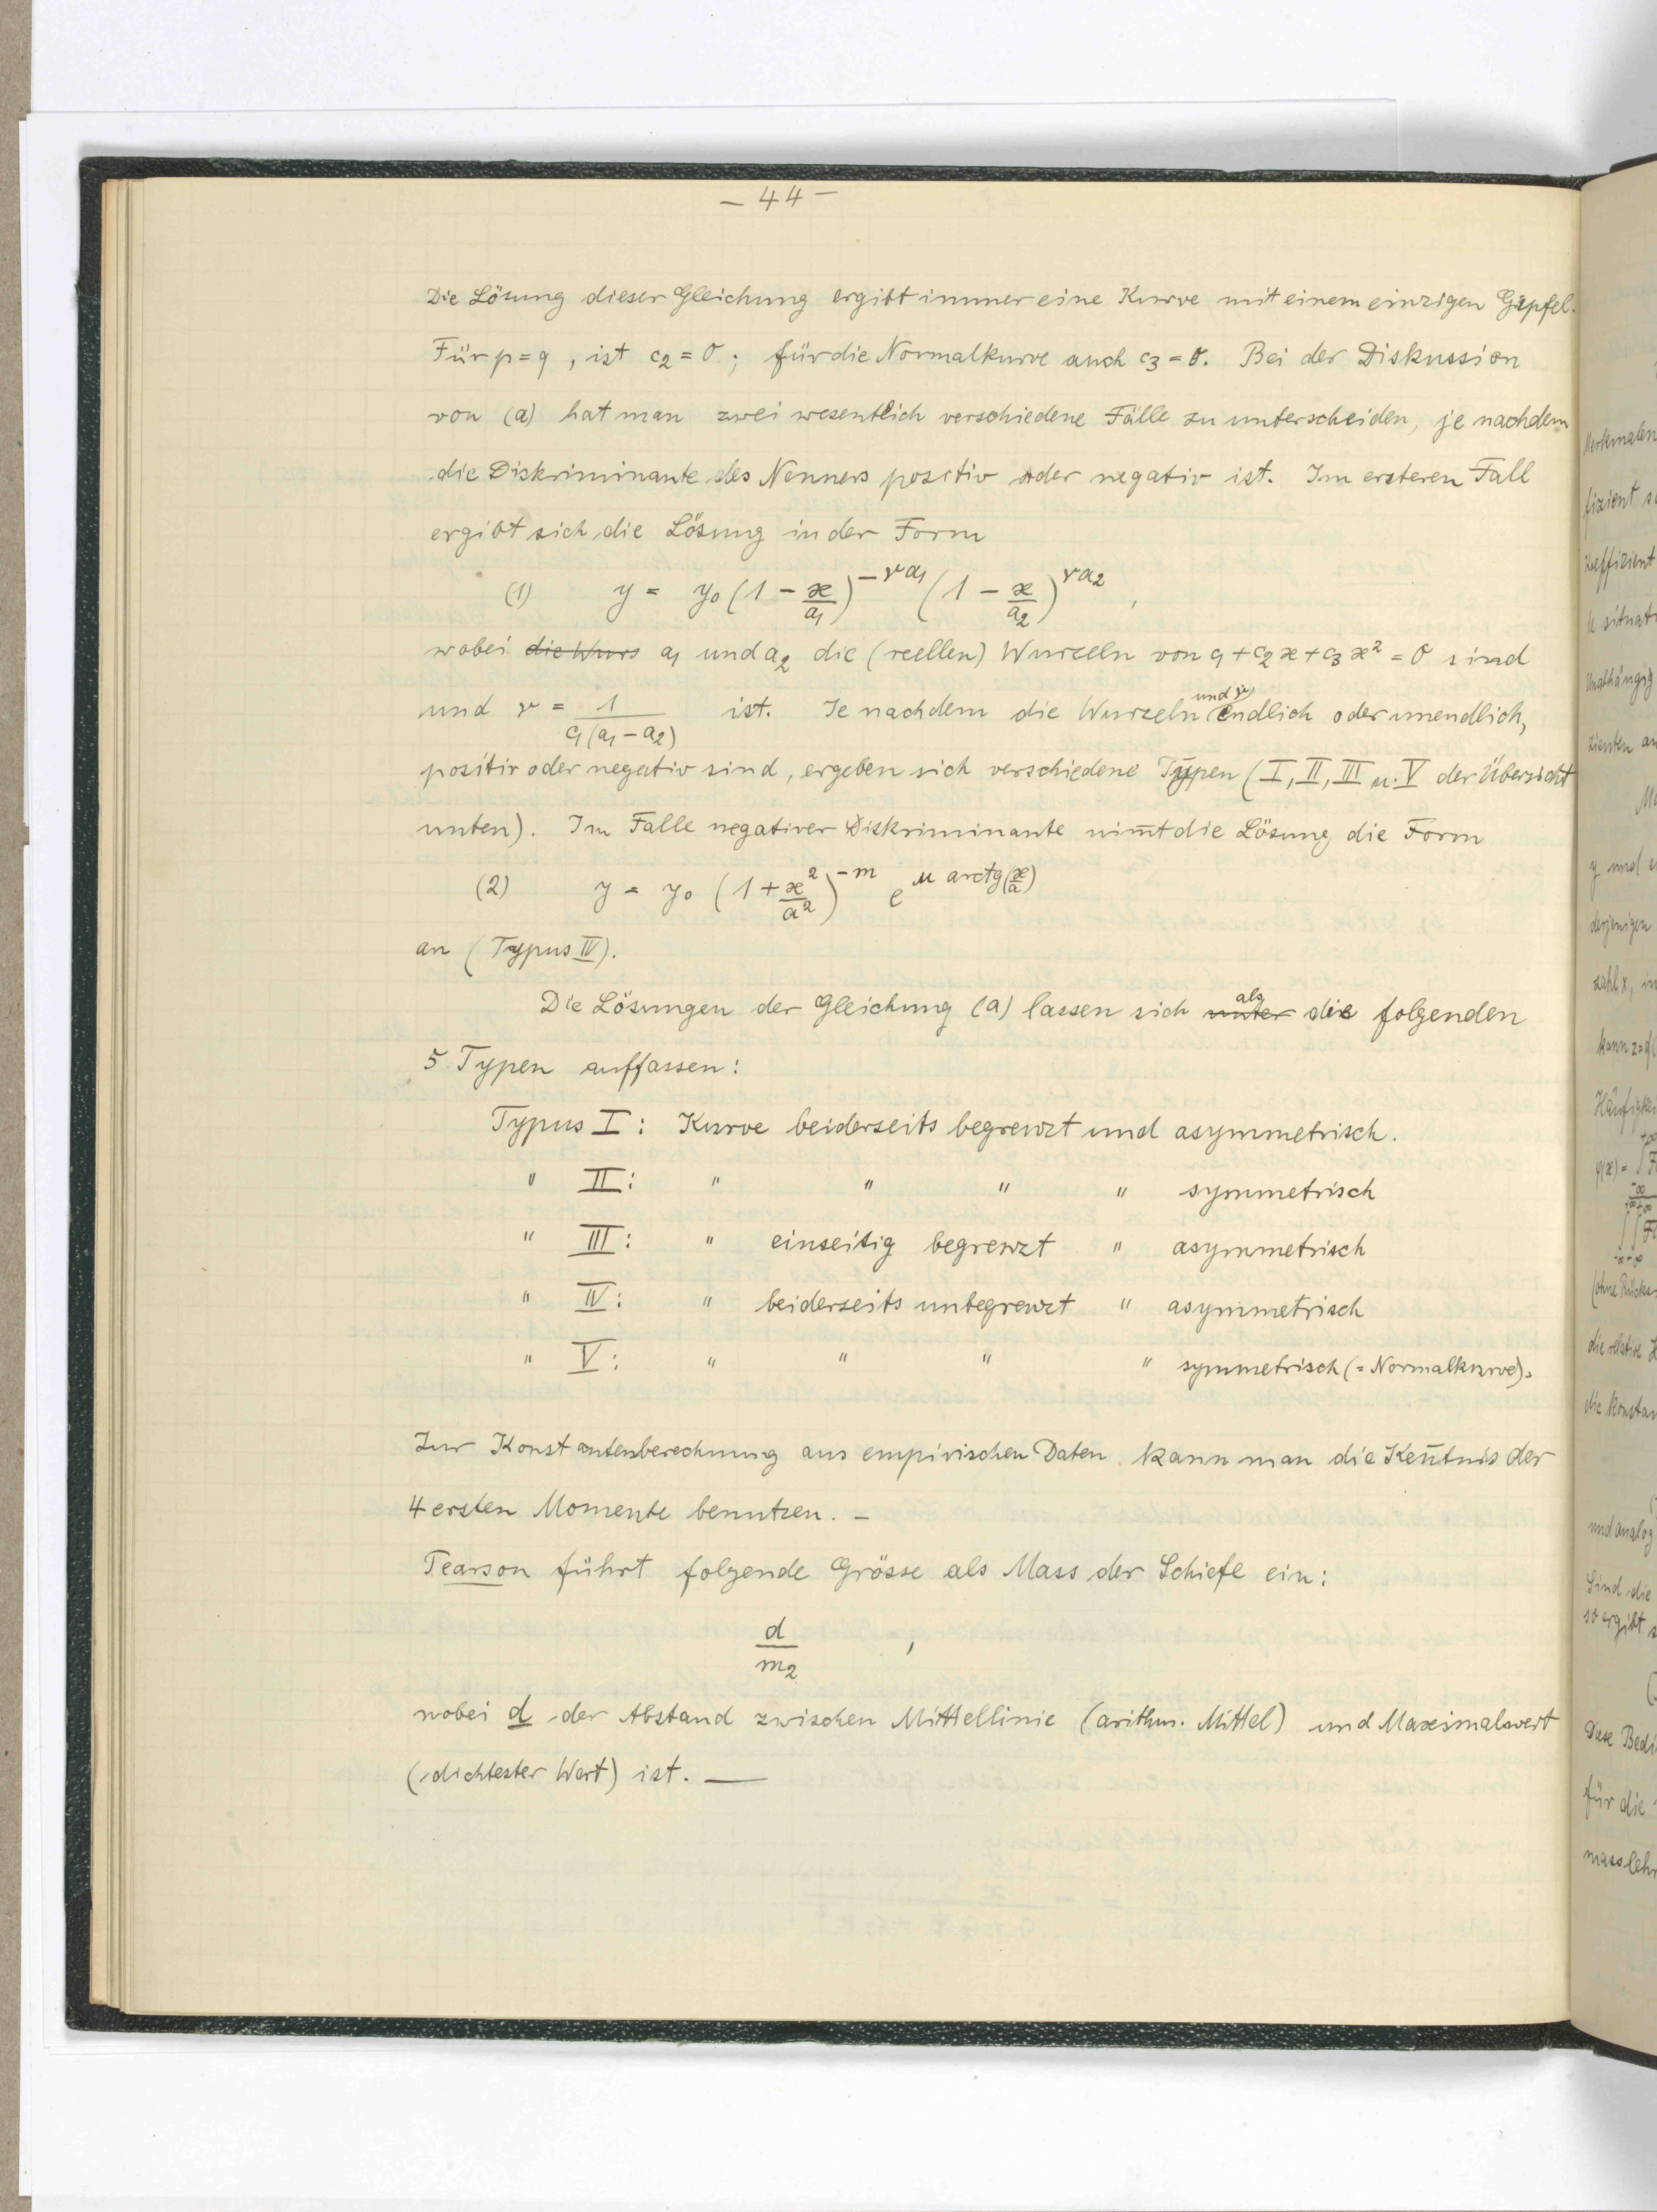 – 44 –
Die Lösung dieser Gleichung ergibt immer eine Kurve mit einem einzigen Gipfel.
Für p = q, ist c₂ = 0; für die Normalkurve auch c₃ = 0. Bei der Diskussion
von (a) hat man zwei wesentlich verschiedene Fälle zu unterscheiden, je nachdem
die Diskriminante des Nenners positiv oder negativ ist. Im ersteren Fall
ergibt sich die Lösung in der Form
(1) y = y₀ (1 − x/a₁)^(−νa₁) (1 − x/a₂)^(νa₂),
wobei die Wurz a₁ und a₂ die (reellen) Wurzeln von c₁ + c₂x + c₃x² = 0 sind
und ν = 1/(c₁(a₁ − a₂)) ist. Je nachdem die Wurzeln endlich oder unendlich,
positiv oder negativ sind, ergeben sich verschiedene Typen (I, II, III u. V der Übersicht
unten). Im Falle negativer Diskriminante nim̅t die Lösung die Form
(2) y = y₀ (1 + x²/a²)^(−m) e^(μ arctg(x/a))
an (Typus IV).
Die Lösungen der Gleichung (a) lassen sich unter als die folgenden
5 Typen auffassen:
Typus I: Kurve beiderseits begrenzt und asymmetrisch.
" II: " " " " symmetrisch
" III: " einseitig begrenzt " asymmetrisch
" IV: " beiderseits unbegrenzt " asymmetrisch
" V: " " " " symmetrisch (= Normalkurve).
Zur Konstantenberechnung aus empirischen Daten kann man die Ken̅tnis der
4 ersten Momente benutzen. –
Pearson führt folgende Grösse als Mass der Schiefe ein:
d/m₂ ,
wobei d der Abstand zwischen Mittellinie (arithm. Mittel) und Maximalwert
(dichtester Wert) ist. —